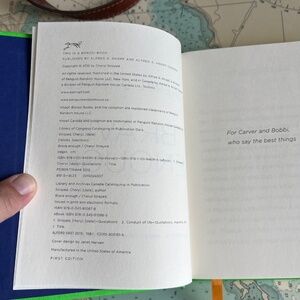 THIS IS A BORZOI BOOK
PUBLISHED BY ALFRED A. KNOPF AND ALFRED A. KNOPF CANADA
Copyright © 2015 by Cheryl Strayed
All rights reserved. Published in the United States by Alfred A. Knopf, a division
of Penguin Random House LLC, New York, and in Canada by
a division of Penguin Random House Canada
Toronto.
www.aaknopf.com
www.penguinrandomhouse.ca
Knopf, Borzoi Books, and the colophon are registered trademarks of Penguin
Random House LLC.
Knopf Canada and colophon are trademarks of Penguin Random House
Library of Congress Cataloging-in-Publication Data
Strayed, Cheryl, [date]
[Works. Selections]
Brave enough / Cheryl Strayed.
pages cm
1. Strayed, Cheryl, [date]—Quotations.
I. Title.
Library and Archives Canada Cataloguing in Publication
Strayed, Cheryl, author
Brave enough / Cheryl Strayed.
Issued in print and electronic formats.
1. Strayed, Cheryl, [date]—Quotations. 2. Conduct of life—Quotations, maxims,
I. Title.
Cover design by Janet Hansen
Manufactured in the United States of America
FIRST EDITION
For Carver and Bobbi,
who say the best things